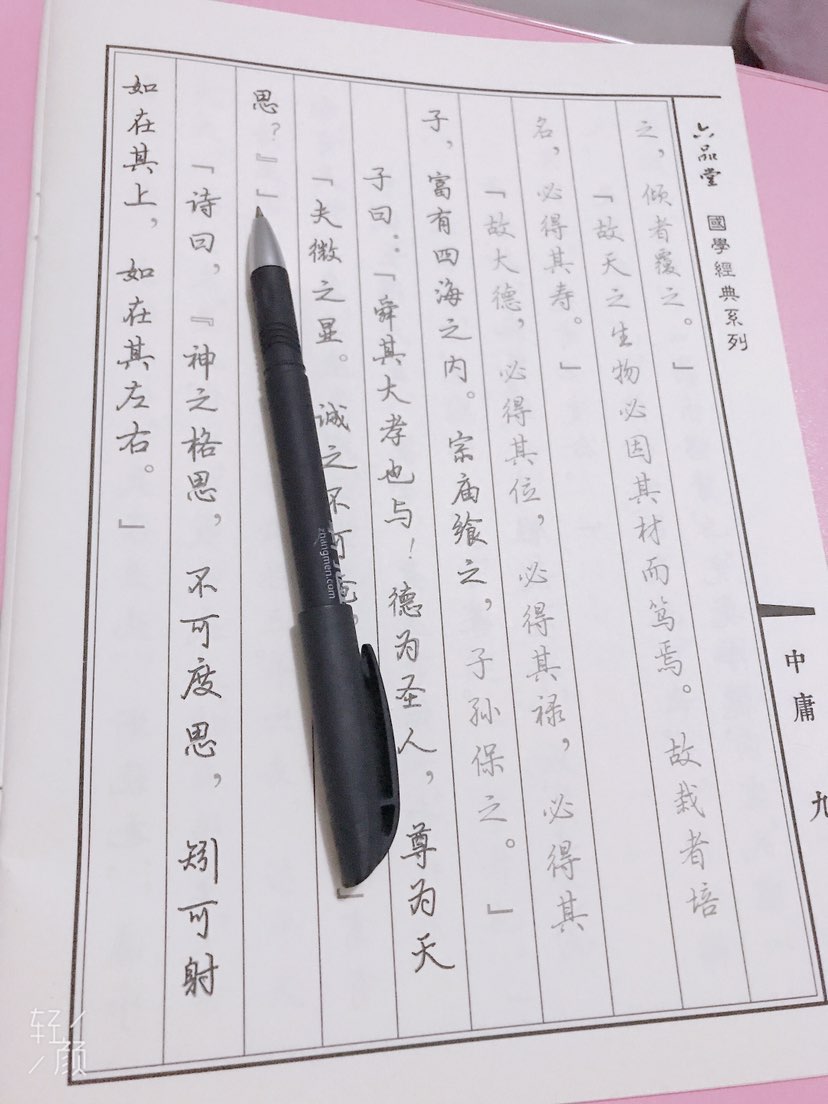 如在其上，如在其左右。」
「诗曰，『神之格思，不可度思，矧可射
思？』」
「夫微之显。诚之不可，」
子曰：「舜其大孝也与！德为圣人，尊为天
子，富有四海之内。宗庙飨之，子孙保之。」
「故大德，必得其位，必得其禄，必得其
名，必得其寿。」
「故天之生物必因其材而笃焉。故栽者培
之，倾者覆之。」
六品堂 國學經典系列
中庸 九
zhangmen.com
轻颜